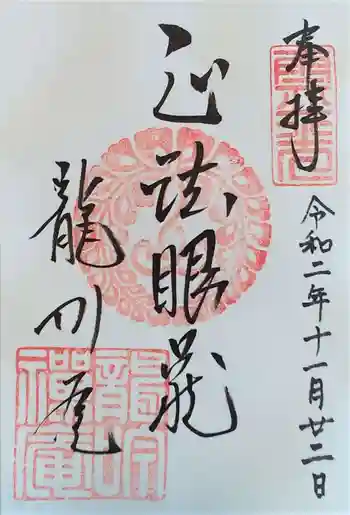 奉拝
令和二年十一月廿二日
正法眼蔵
龍吟庵
龍吟
禅庵